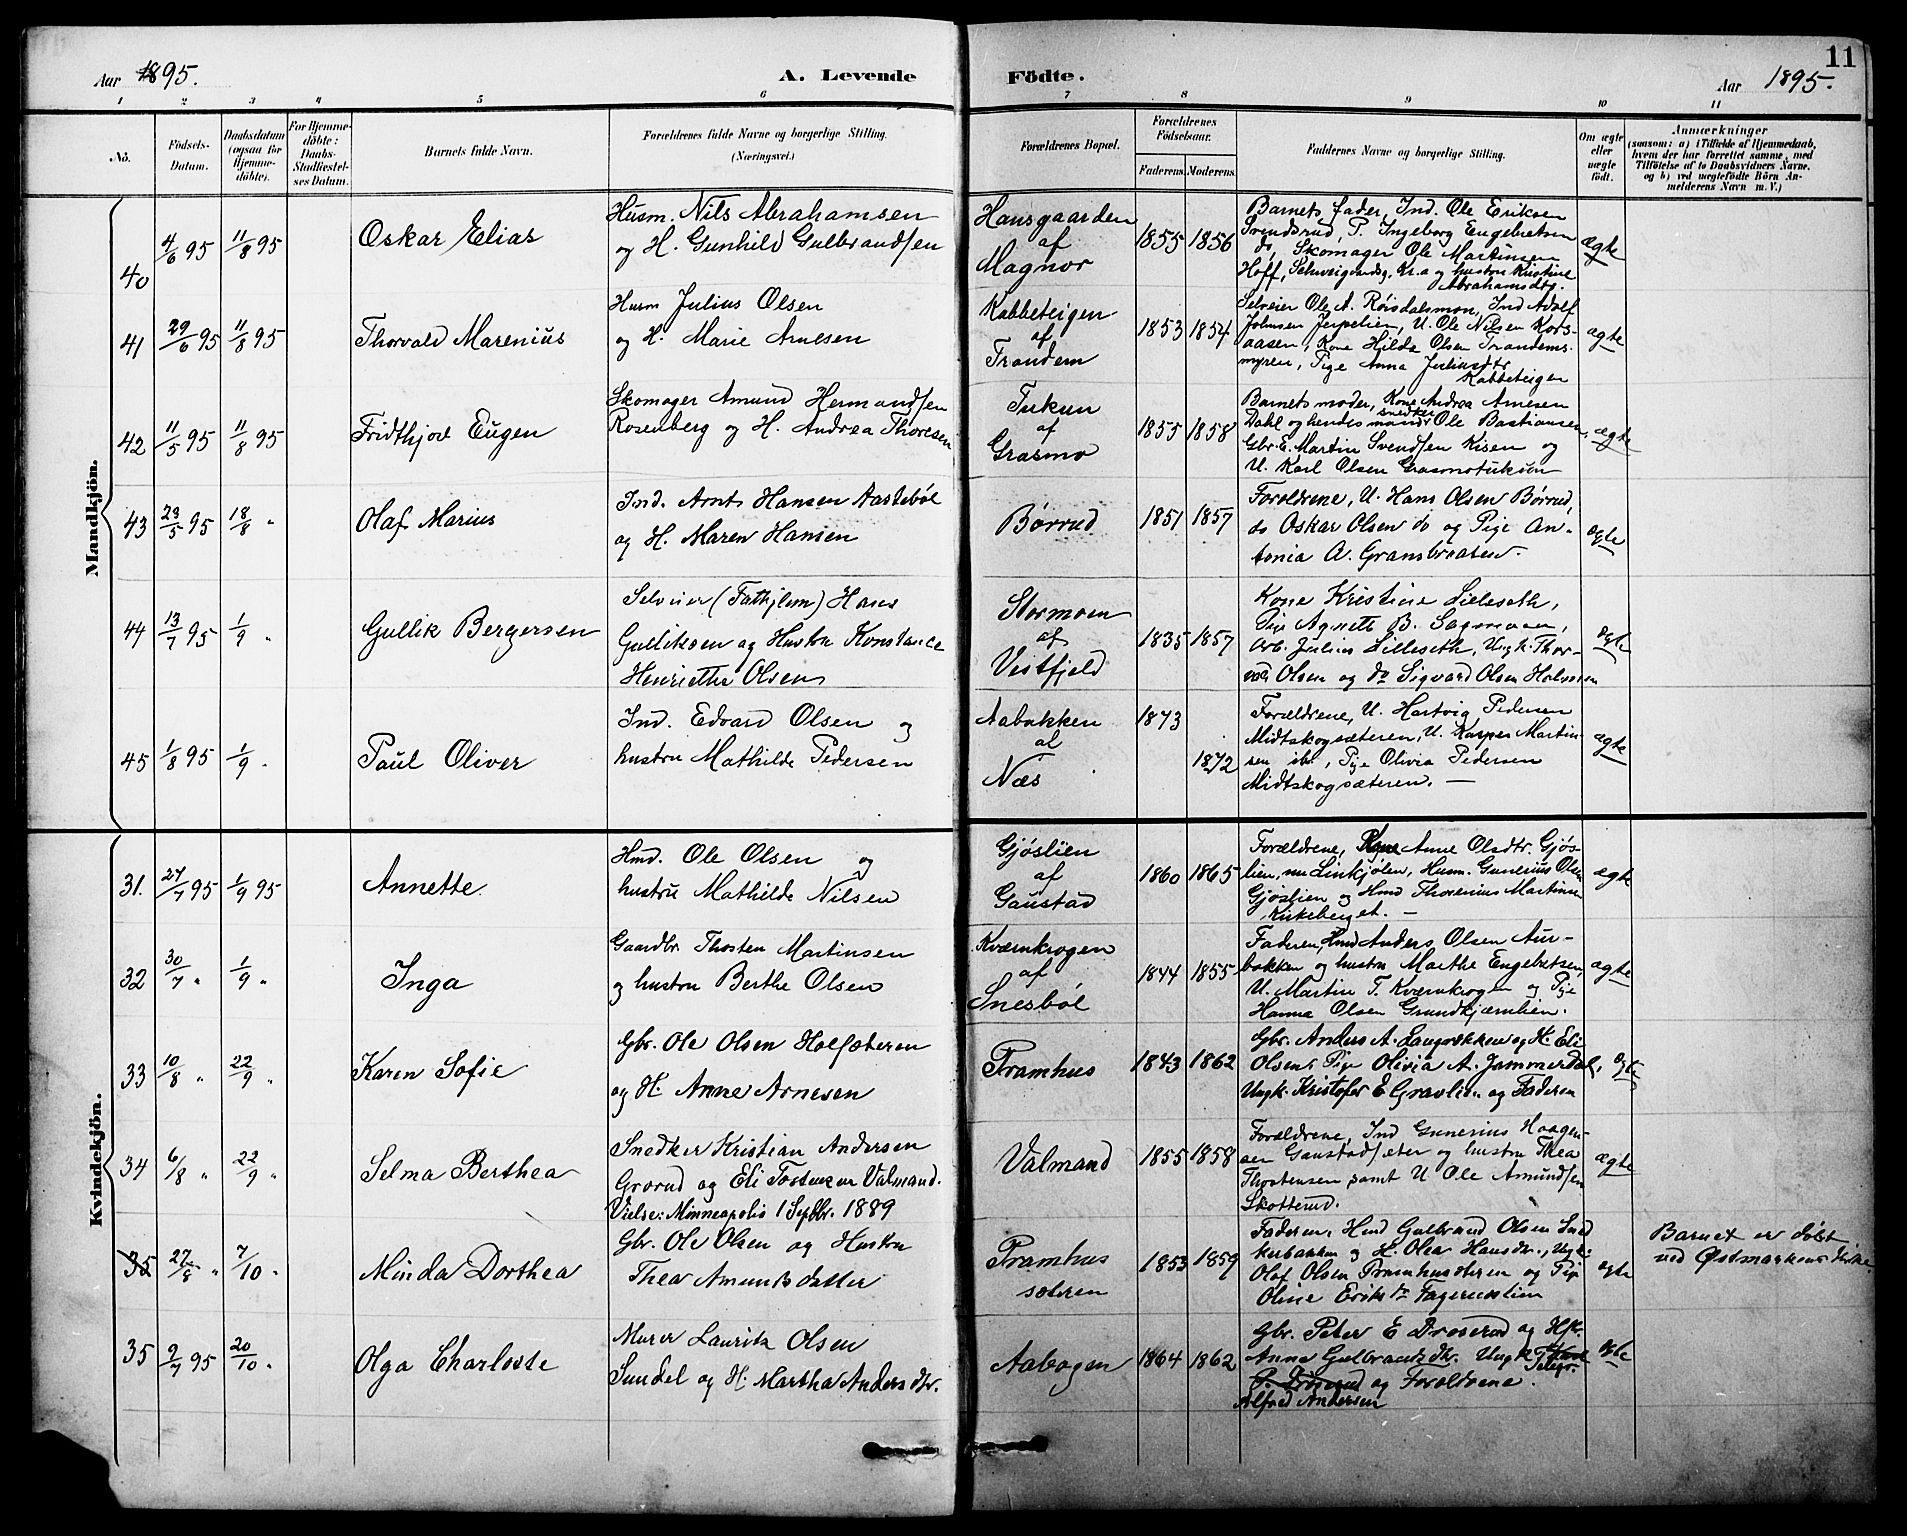 11
Aar 1895.
A. Levende Födte.
Aar 1895.
1 2 3 4 5 6 7 8 9 10 11
No.
Födsels-
Datum.
Daabsdatum
(ogsaa for
Hjemme-
döbte).
For Hjemme-
döbte:
Daabs-
Stadfæstel-
ses Datum.
Barnets fulde Navn.
Forældrenes fulde Navne og borgerlige Stilling.
(Næringsvei.)
Forældrenes Bopæl.
Forældrenes
Födselsaar.
Faderens Moderens.
Faddernes Navne og borgerlige Stilling.
Om ægte
eller
uægte
födt.
Anmærkninger
(saasom: a) i Tilfælde af Hjemmedaab,
hvem der har forrettet samme, med
Tilföielse af to Daabsvidners Navne.
og b) ved uægtefödte Börn An-
melderens Navn m. V.)
Mandkjön.
40
4/6 95
11/8 95
Oskar Elias
Husm. Nils Abrahamsen
og H. Gunhild Gulbrandsen
Hansgaarden
af
Magnor
1855 1856
Barnets fader, Ind. Ole Eriksen
Svendsrud, P. Ingeborg Engebretsen
do, Skomager Ole Martinsen
Hoff, Kr.a og hustru Kristine
Abrahamsdtg.
ægte
41
29/6 95
11/8 95
Thorvald Marenius
Husm Julius Olsen
og H. Marie Arnesen
Kabbeteigen
af
Trandem
1853 1854
Selveier Ole A. Röisdalsmon, Ind Adolf
Johnsen Jerpelien, U. Ole Nilsen Kors-
aasen, Kone Hilda Olsen Trandems-
myren, Pige Anna Juliusdtr
Kabbeteigen
ægte
42
11/5 95
11/8 95
Fridthjof Eugen
Skomager Amund Hermandsen
Rosenberg og H. Andrea Thoresen
Tukun
af
Grasmo
1855 1858
Barnets moder, Kone Andrea Arnesen
Dahl og hendes mand snedker Ole Bastiansen,
Gbr. E. Martin Svendsen Kisen og
U. Karl Olsen Grasmotukun
ægte
43
23/5 95
18/8 "
Olaf Marius
Ind. Arnt Hansen Aastebøl
og H. Maren Hansen
Børrud
1851 1857
Forældrene, U. Hans Olsen Børrud,
do Oskar Olsen do og Pige An-
tonia A. Gransbraaten.
ægte
44
13/7 95
1/9 "
Gullik Bergersen
Selveier (Fattiglem) Hans
Gulliksen og Hustru Konstance
Henriette Olsen
Stormoen
af
Vestfjeld
1835 1857
Kone Kristine Lilleseth,
Pige Agnette B. Sagmoen,
Arb. Julius Lilleseth, Ungk. Thor-
vald Olsen og do Sigvard Olsen Holmsen
ægte
45
1/8 95
1/9 "
Paul Oliver
Ind. Edvard Olsen og
hustru Mathilde Pedersen
Aabakken
af
Næs
1873
1872
Forældrene, U. Hartvig Pedersen
Midtskogsæteren, U. Kasper Martin-
sen ibd, Pige Olivia Pedersen
Midtskogsæteren. —
ægte
Kvindekjön.
31.
27/7 95
1/9 95
Annette
Hmd. Ole Olsen og
hustru Mathilde Nilsen
Gjøslien
af
Gaustad
1860 1865
Forældrene, Kone Anne Olsdtr. Gjøs-
lien, nu Linkjølen, Husm. Gunerius Olsen
Gjøslien og Hmd Thorenius Martinsen
Kirkeberget. —
ægte
32
30/7 "
1/9 "
Inga
Gaardbr Thosten Martinsen
og hustru Berthe Olsen
Kværnkrogen
af
Snesbøl
1844 1855
Faderen, Hmd Anders Olsen Aur-
bakken og hustru Marthe Engebretsen,
U. Martin T. Kværnkrogen og Pige
Hanna Olsen Grundkjærnlien.
ægte
33
10/8 "
22/9 "
Karen Sofie
Gbr. Ole Olsen Holsæteren
og H. Anne Arnesen
Framhus
1843 1862
Gbr. Anders A. Langrækken og H. Eli
Olsen, Pige Olivia A. Jammerdal,
Ungk. Kristofer E Gravlien og Faderen
ægte
34
6/8 "
22/9 "
Selma Berthea
Snedker Kristian Andersen
Grorud og Eli Tostensen Valmand.
Vielse: Minneapolis 1 Septbr. 1889
Valmand
1855 1858
Forældrene, Ind Gunerius Haagen-
sen Gaustadsæter og hustru Thea
Thostensen samt U Ole Amundsen
Skotterud.
ægte
35
27/8 "
7/10 "
Minda Dorthea
Gbr. Ole Olsen og Hustru
Thea Amundsdatter
Framhus
sæteren
1853 1859
Faderen, Hmd Gulbrand Olsen
og H. Olea Hansdtr., Ungk.
Olaf Olsen Framhussæteren og Pige
Oline Eriks dtr Fagerneslien
ægte
Barnet er døbt
ved Østmarkens Kirke
35
9/7 95
20/10 "
Olga Charlotte
Murer Lauritz Olsen
Sundel og H. Martha Andersdtr.
Aabogen
1864 1862
Gbr. Peter E Droserud og Hfk.
Anne Gulbrandsdtr. Ungk. Telegr.
og Forældrene.
Alfred Andersen
ægte